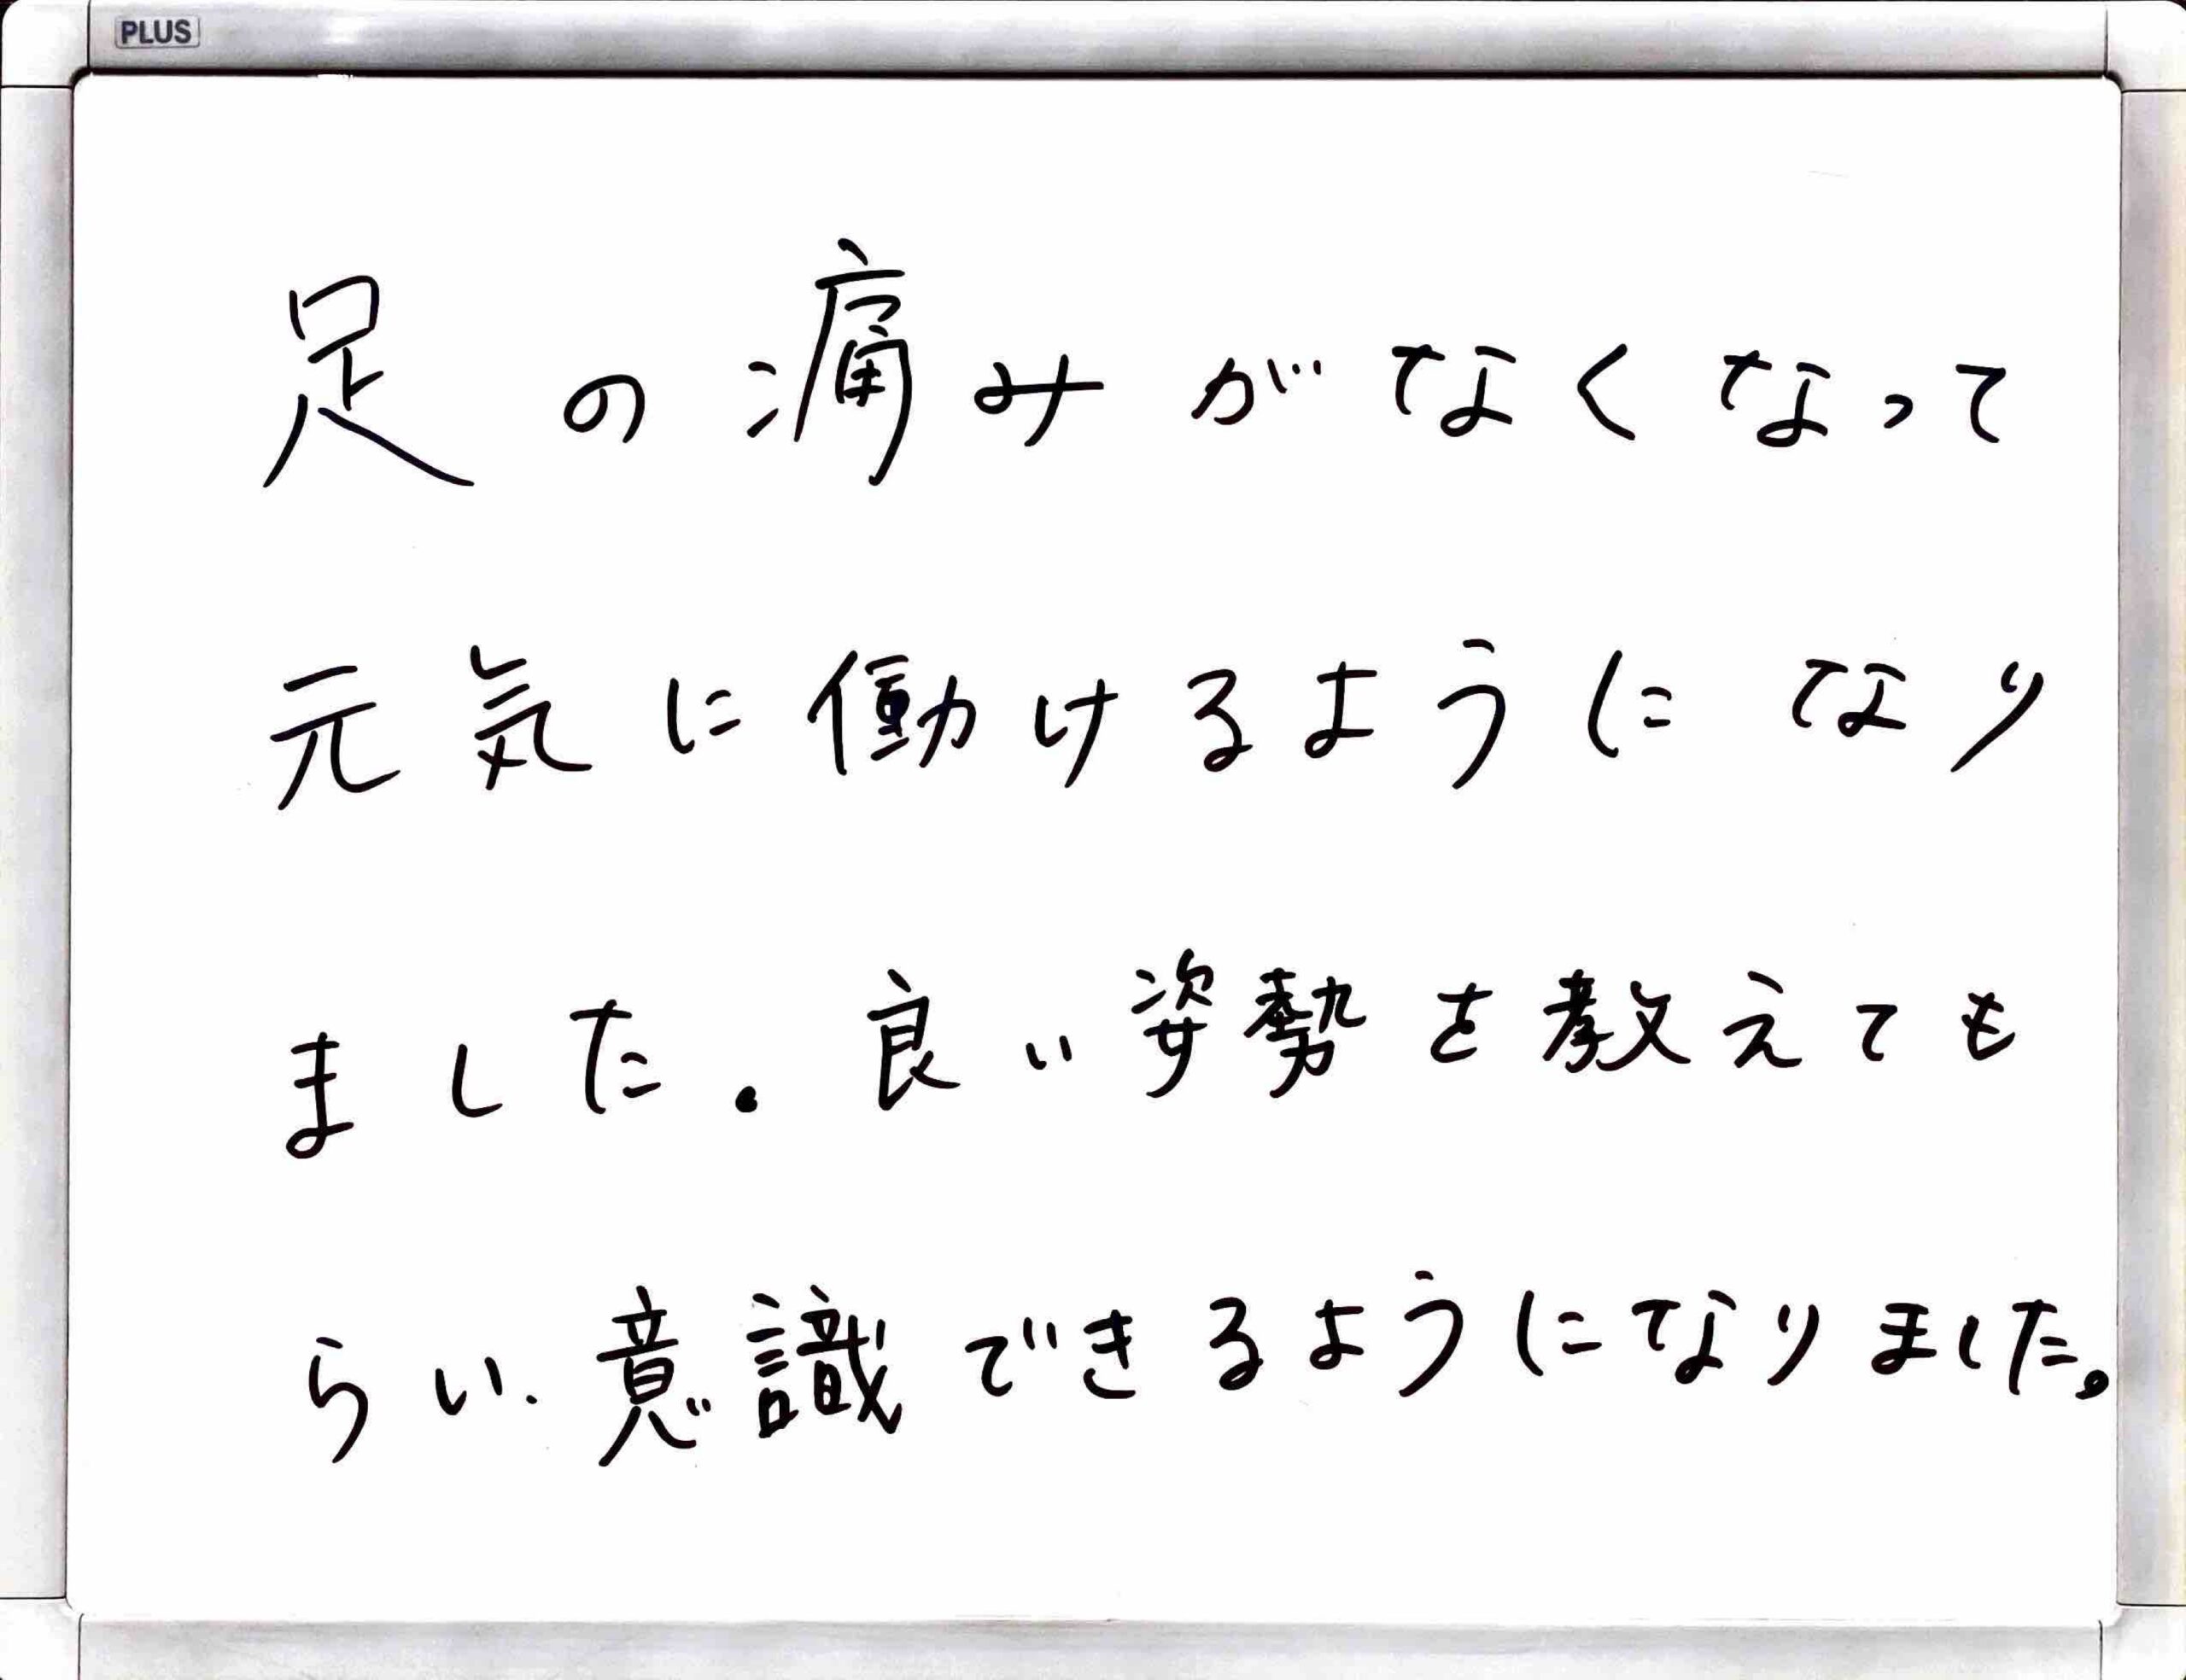 PLUS
足の痛みがなくなって
元気に働けるようになり
ました。良い姿勢を教えても
らい、意識できるようになりました。